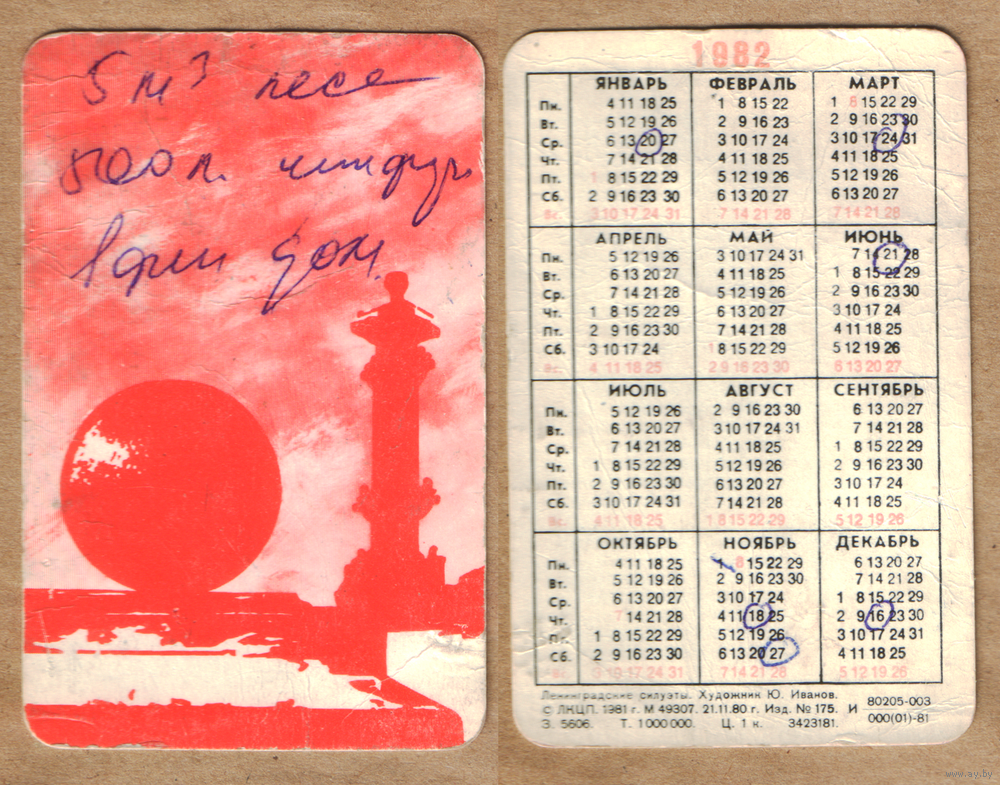 5 м³ леса
500 л.
дом
1982
ЯНВАРЬ ФЕВРАЛЬ МАРТ
Пн. 4 11 18 25 1 8 15 22 1 8 15 22 29
Вт. 5 12 19 26 2 9 16 23 2 9 16 23 30
Ср. 6 13 20 27 3 10 17 24 3 10 17 24 31
Чт. 7 14 21 28 4 11 18 25 4 11 18 25
Пт. 1 8 15 22 29 5 12 19 26 5 12 19 26
Сб. 2 9 16 23 30 6 13 20 27 6 13 20 27
Вс. 3 10 17 24 31 7 14 21 28 7 14 21 28
АПРЕЛЬ МАЙ ИЮНЬ
Пн. 5 12 19 26 3 10 17 24 31 7 14 21 28
Вт. 6 13 20 27 4 11 18 25 1 8 15 22 29
Ср. 7 14 21 28 5 12 19 26 2 9 16 23 30
Чт. 1 8 15 22 29 6 13 20 27 3 10 17 24
Пт. 2 9 16 23 30 7 14 21 28 4 11 18 25
Сб. 3 10 17 24 1 8 15 22 29 5 12 19 26
Вс. 4 11 18 25 2 9 16 23 30 6 13 20 27
ИЮЛЬ АВГУСТ СЕНТЯБРЬ
Пн. 5 12 19 26 2 9 16 23 30 6 13 20 27
Вт. 6 13 20 27 3 10 17 24 31 7 14 21 28
Ср. 7 14 21 28 4 11 18 25 1 8 15 22 29
Чт. 1 8 15 22 29 5 12 19 26 2 9 16 23 30
Пт. 2 9 16 23 30 6 13 20 27 3 10 17 24
Сб. 3 10 17 24 31 7 14 21 28 4 11 18 25
Вс. 4 11 18 25 1 8 15 22 29 5 12 19 26
ОКТЯБРЬ НОЯБРЬ ДЕКАБРЬ
Пн. 4 11 18 25 1 8 15 22 29 6 13 20 27
Вт. 5 12 19 26 2 9 16 23 30 7 14 21 28
Ср. 6 13 20 27 3 10 17 24 1 8 15 22 29
Чт. 7 14 21 28 4 11 18 25 2 9 16 23 30
Пт. 1 8 15 22 29 5 12 19 26 3 10 17 24 31
Сб. 2 9 16 23 30 6 13 20 27 4 11 18 25
Вс. 3 10 17 24 31 7 14 21 28 5 12 19 26
Ленинградские силуэты. Художник Ю. Иванов.
С ЛКЦП. 1981 г. М 49307. 21.11.80 г. Изд. № 175. И 80205-003
З. 5606. Т. 1 000 000. Ц. 1 к. 3423181. 000(01)-81
www.ay.by